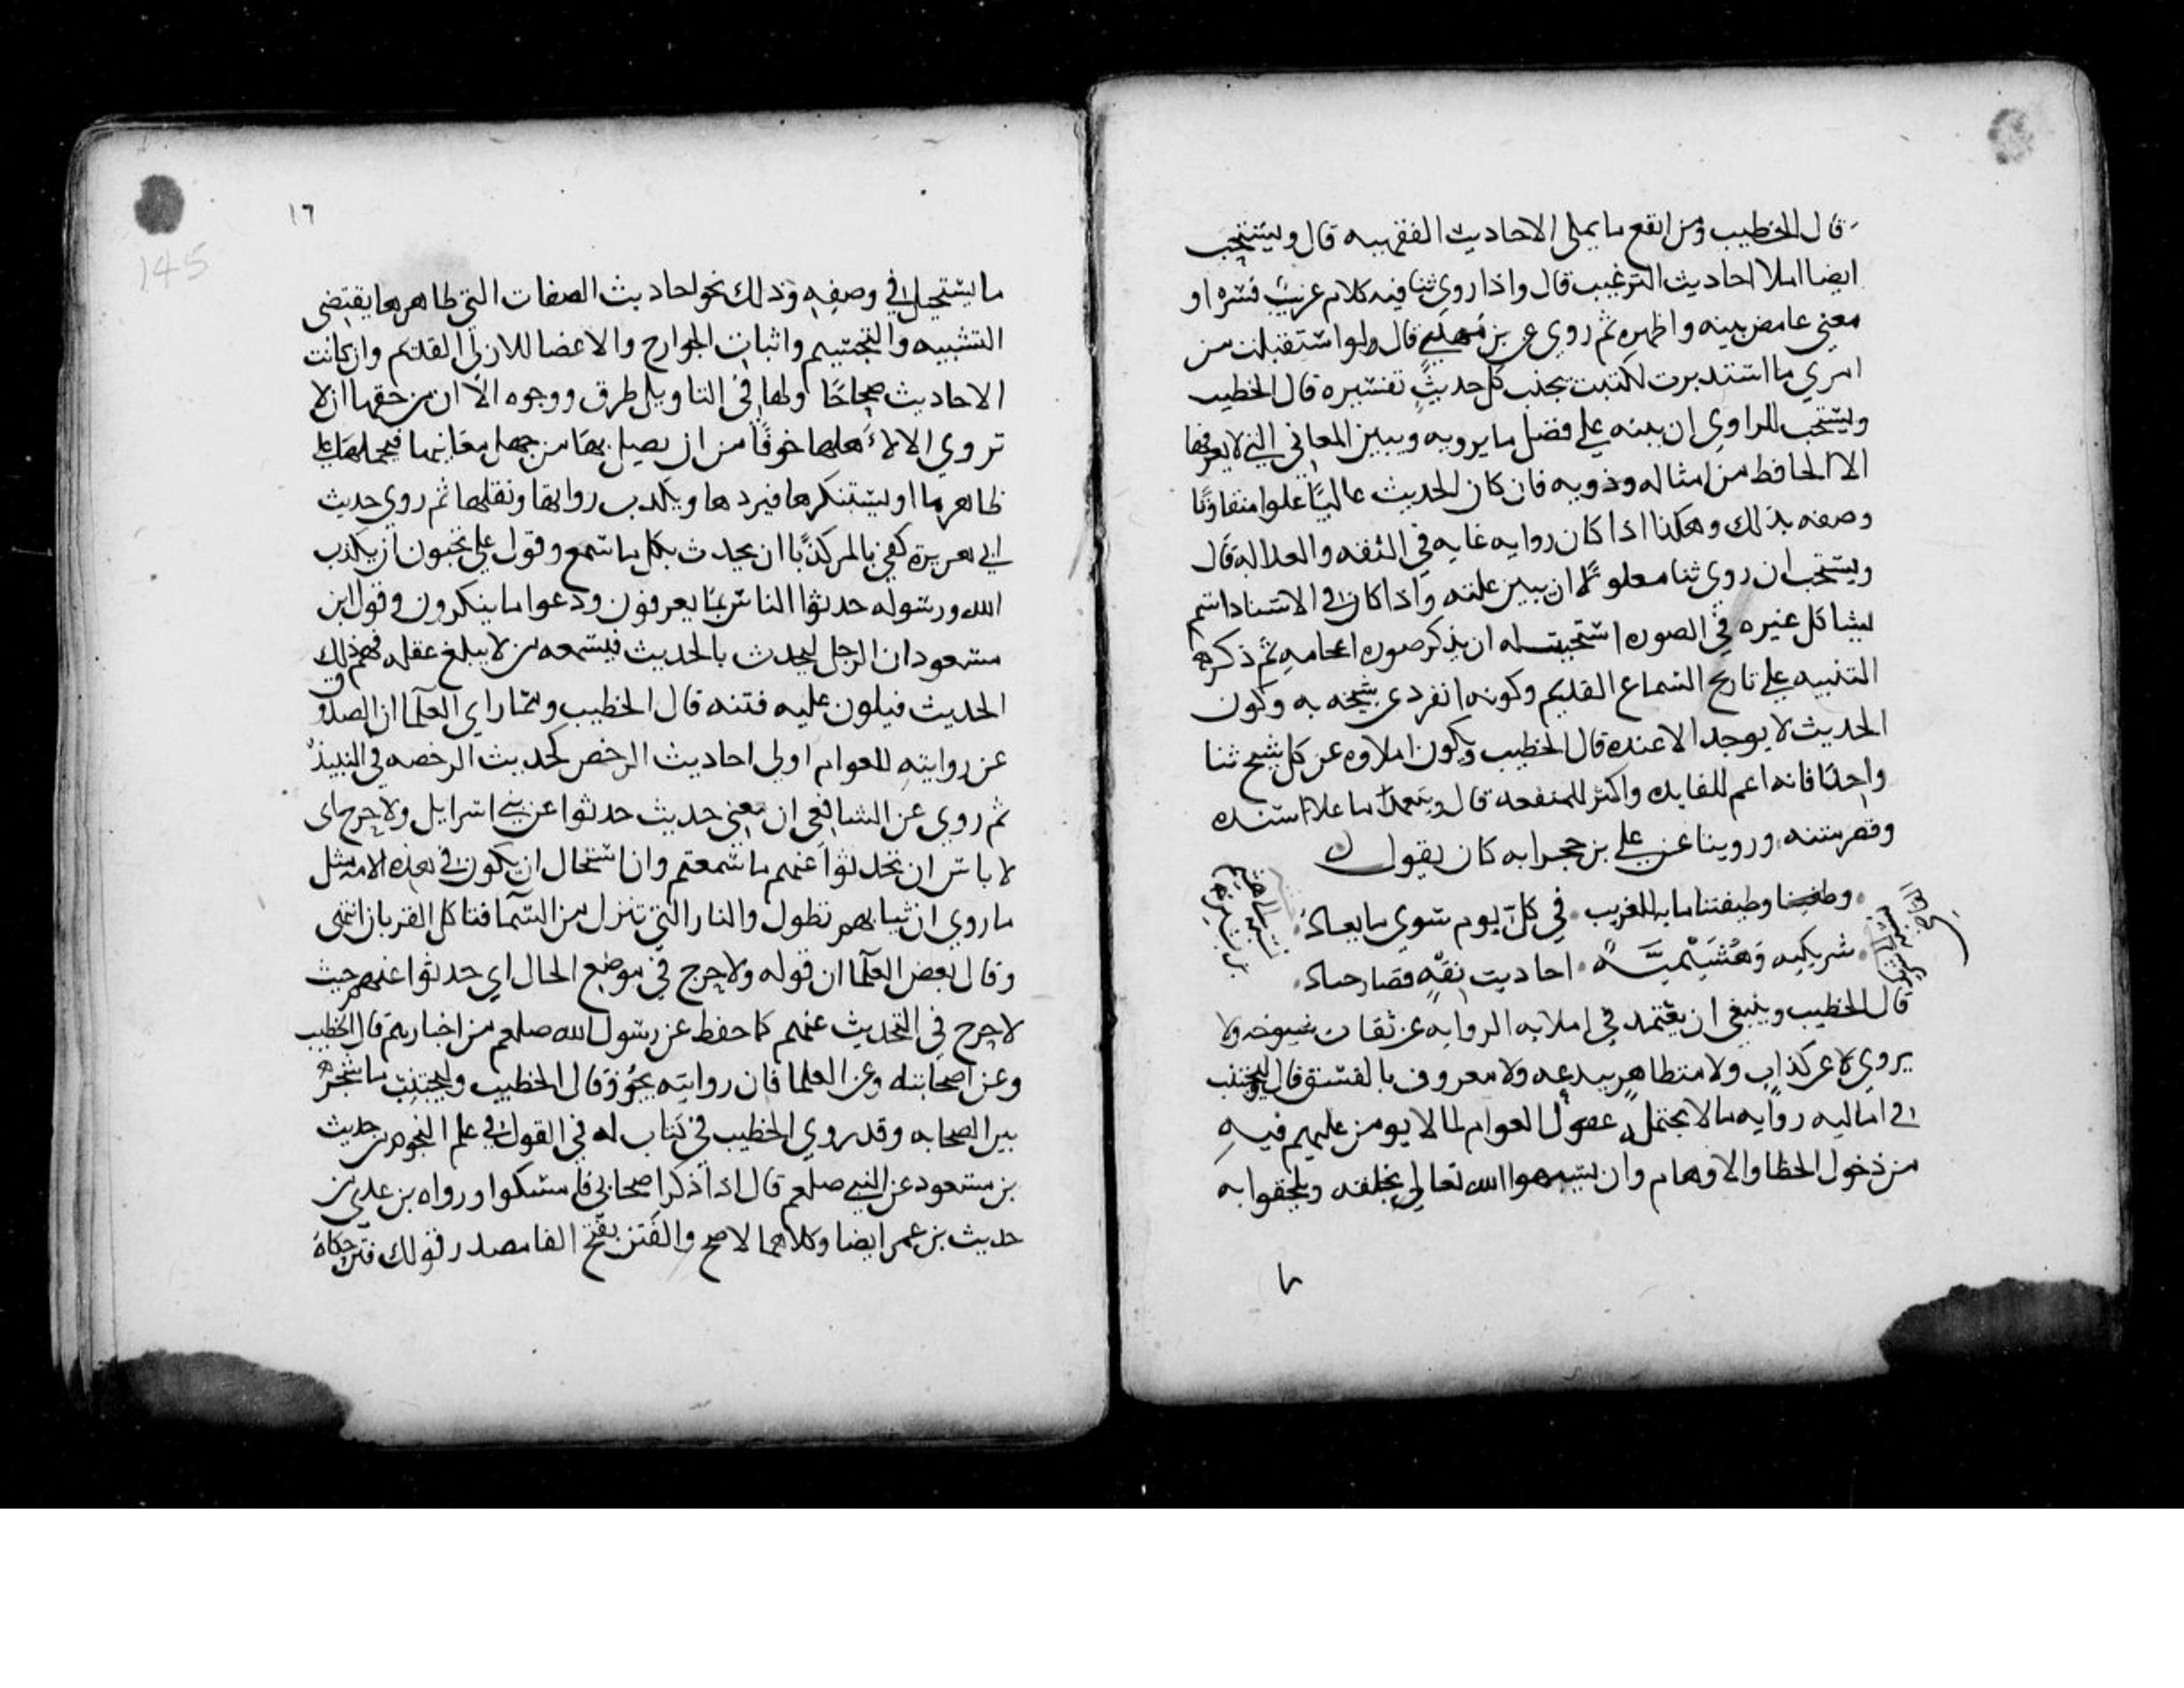 قال الخطيب ومن انفع ما يملى الاحاديث الفقهيه قال ويستحب
ايضا املا احاديث الترغيب قال واذا روى ثنا فيه كلام غريب فسره او
معنى غامض بينه واظهره ثم روي عن بن مهدي قال ولو استقبلت من
امري ما استدبرت لكتبت بجنب كل حديث تفسيره قال الخطيب
ويستحب للراوي ان ينبه على فضل ما يرويه ويبين المعاني التي لا يعرفها
الا الحافظ من امثاله وذويه فان كان الحديث عاليا علوا متفاوتا
وصفه بذلك وهكذا اذا كان روايه غايه في الثقه والعداله قال
ويستحب ان روى ثنا معلولا ان يبين علته واذا كان في الاسناد اسم
يشاكل غيره في الصوره استحبت له ان يذكر صوره اعجامه ثم ذكر
التنبيه على تاريخ السماع القديم وكونه انفرد عن شيخه به وكون
الحديث لا يوجد الا عنده قال الخطيب ويكون املاوه عن كل شيخ ثنا
واحدا فانه اعم للفايده واكثر للمنفعه قال ويتعمد ما علا سنده
وقصر متنه وروينا عن علي بن حجر انه كان يقول
وظيفتنا مايه للغريب في كل يوم سوى ما يعاد
شريكيه وهشيميه احاديث فقه قصار جياد
قال الخطيب وينبغي ان يعتمد في املايه الروايه عن ثقات شيوخه ولا
يروي عن كذاب ولا متظاهر ببدعه ولا معروف بالفسق قال وليجتنب
في اماليه روايه ما لا يحتمله عقول العوام لما لا يومن عليهم فيه
من دخول الخطا والاوهام وان يشبهوا الله تعالى بخلقه ويلحقوا به
١٦
145
ما يستحيل في وصفه وذلك نحو احاديث الصفات التي ظاهرها يقتضى
التشبيه والتجسيم واثبات الجوارح والاعضا للازلي القديم وان كانت
الاحاديث صحاحا ولها في التاويل طرق ووجوه الا ان من حقها ان لا
تروي الا لاهلها خوفا من ان يضل بها من جهل معانيها فيحملها على
ظاهرها او يستنكرها فيردها ويكذب رواتها ونقلها ثم روى حديث
ابي هريرة كفى بالمر كذبا ان يحدث بكل ما سمع وقول علي تحبون ان يكذب
الله ورسوله حدثوا الناس بما يعرفون ودعوا ما ينكرون وقول ابن
مسعود ان الرجل ليحدث بالحديث فيسمعه من لا يبلغ عقله فهم ذلك
الحديث فيكون عليه فتنه قال الخطيب ومما راي العلما ان الصدوف
عن روايته للعوام اولى احاديث الرخص كحديث الرخصه في النبيذ
ثم روي عن الشافعي ان معنى حديث حدثوا عن بني اسرايل ولا حرج اى
لا باس ان تحدثوا عنهم ما سمعتم وان استحال ان يكون في هذه الامه مثل
ما روي ان ثيابهم تطول والنار التي تنزل من السما فتاكل القربان انتهى
وقال بعض العلما ان قوله ولا حرج في موضع الحال اي حدثوا عنهم حيث
لا حرج في التحديث عنهم كما حفظ عن رسول الله صلعم من اخبارهم قال الخطيب
وعن اصحابته وعن العلما فان روايته تجوز وقال الخطيب وليجتنب ما شجر
بين الصحابه وقد روي الخطيب في كتاب له في القول في علم النجوم من حديث
بن مسعود عن النبي صلعم قال اذا ذكر اصحابي فامسكوا ورواه بن عدي من
حديث بن عمر ايضا وكلاهما لا صح والفتن بفتح الفا مصدر قولك فتن حكاه